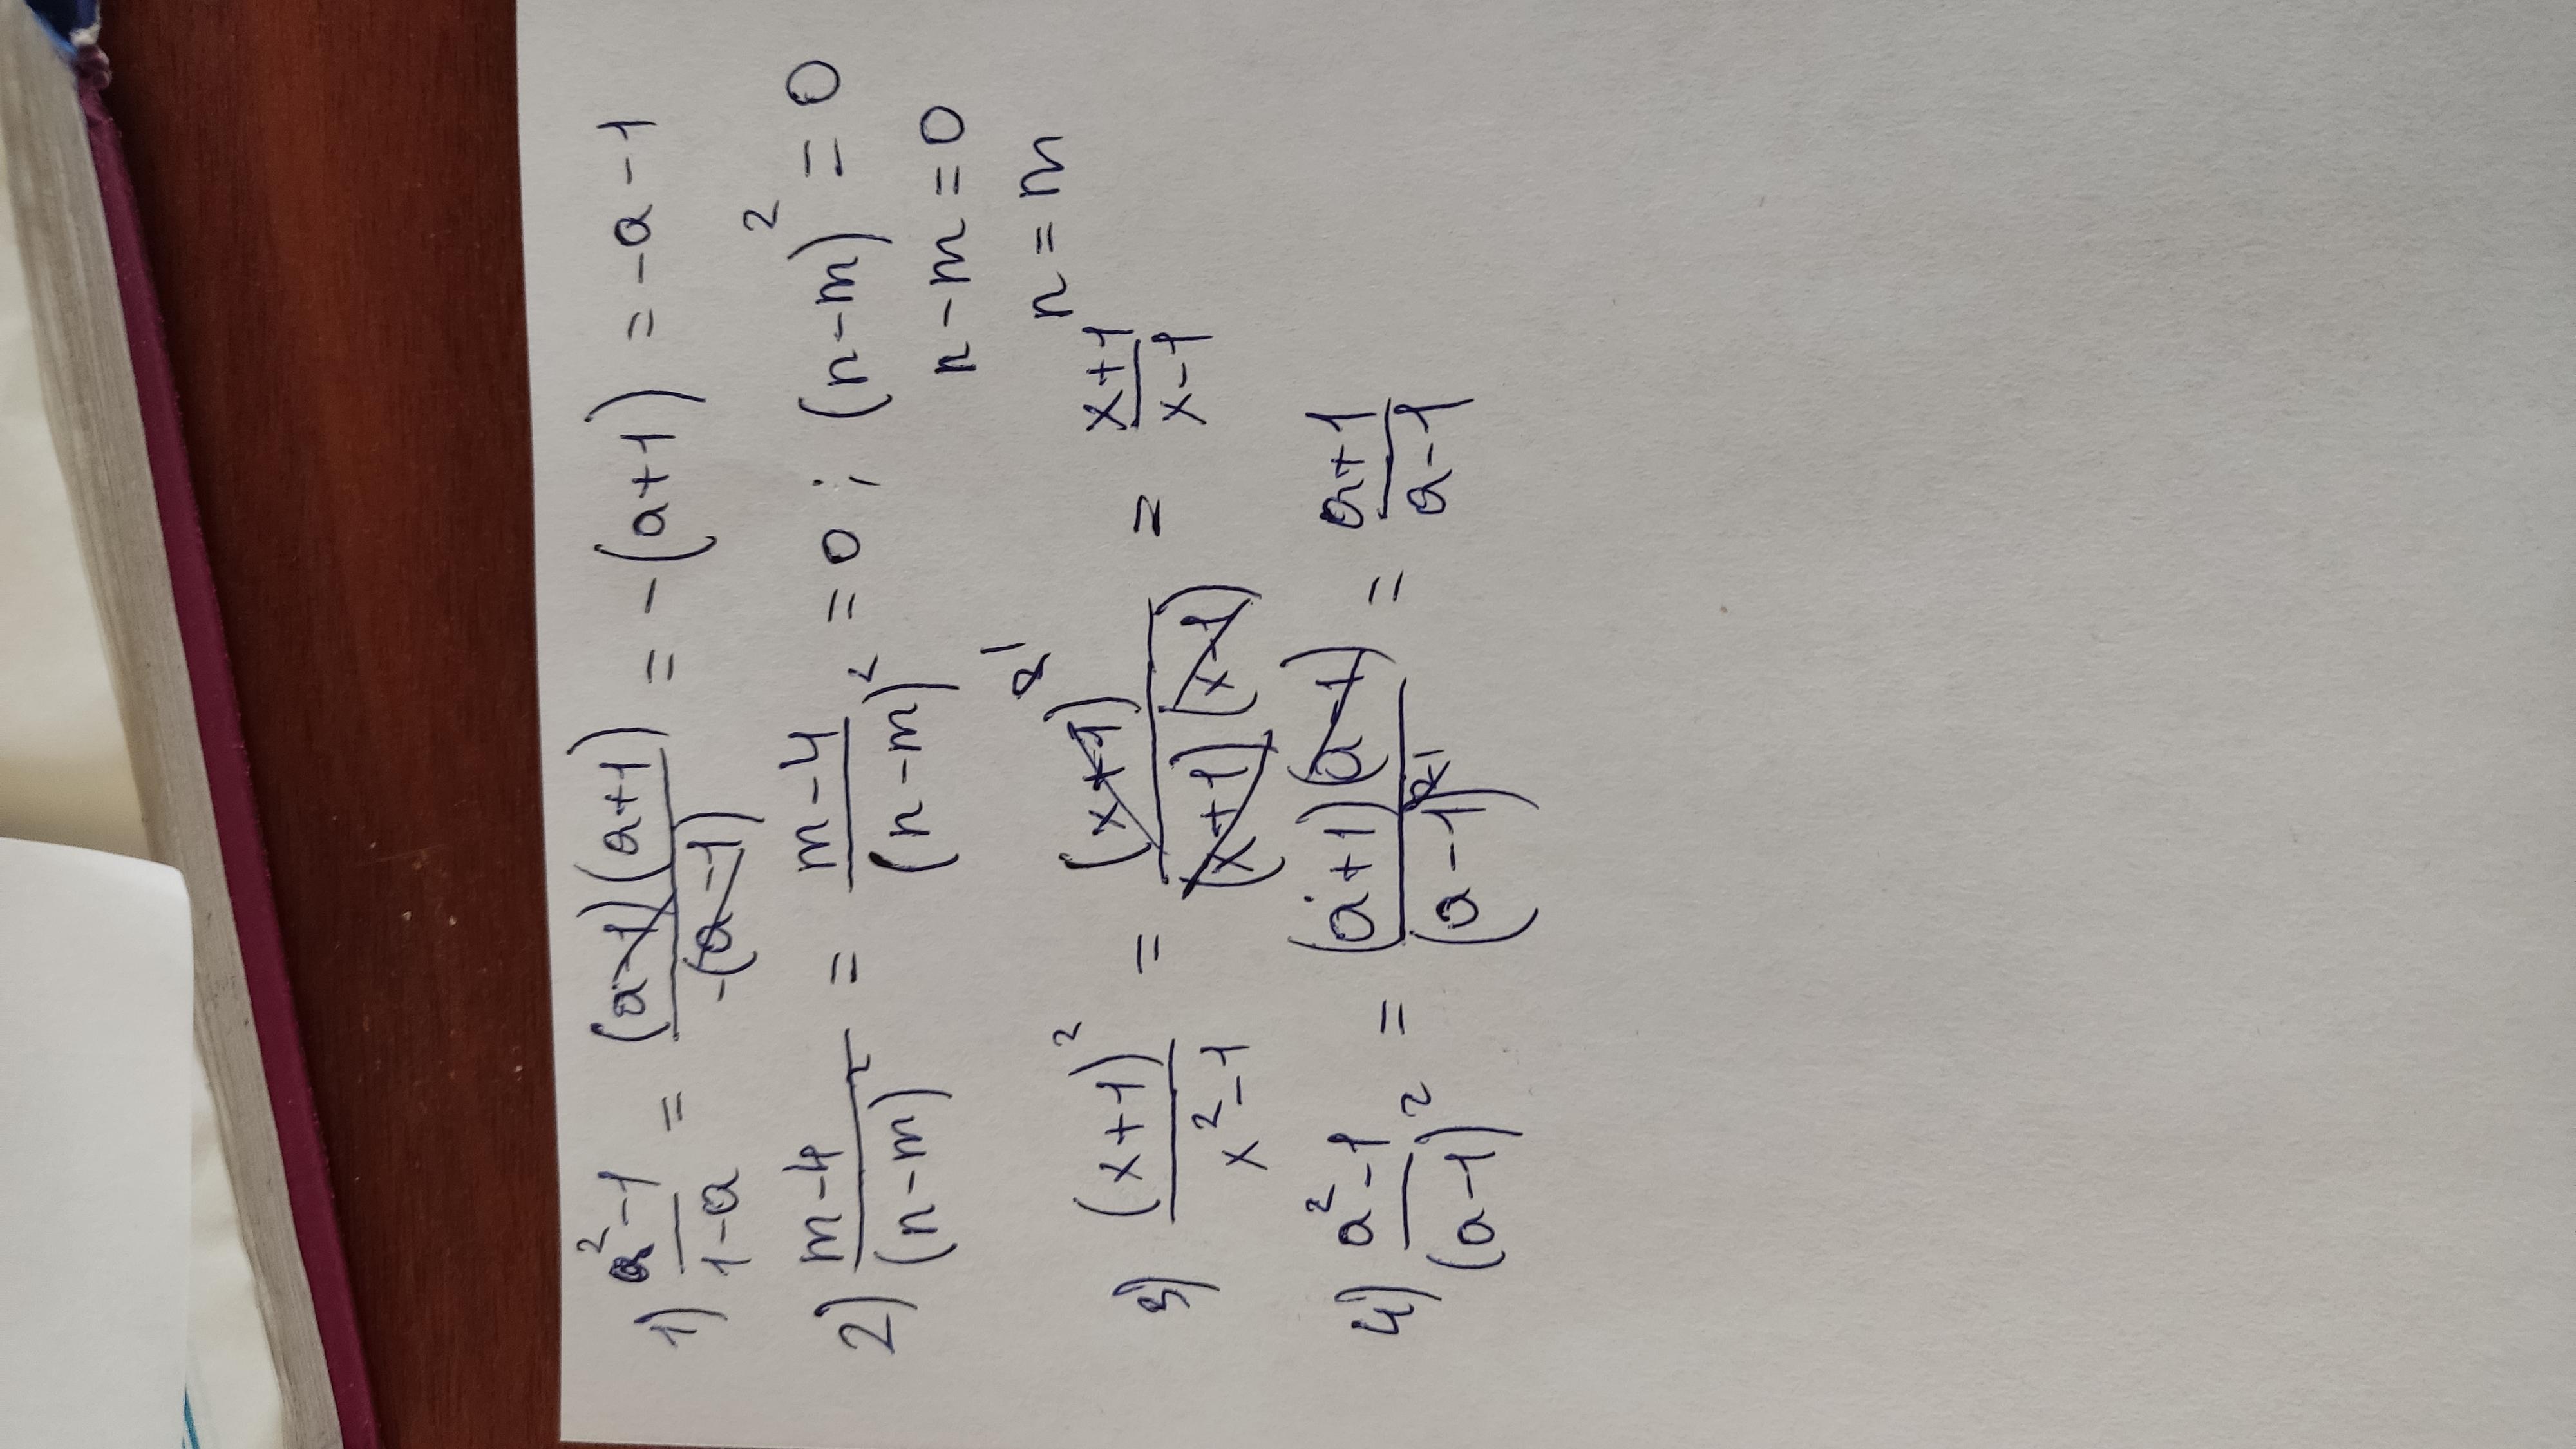 1) a²-1/1-a = (a-1)(a+1)/-(a-1) = -(a+1) = -a-1
2) m-4/(n-m)² = m-4/(n-m)² = 0; (n-m)² = 0
n-m=0
n=m
3) (x+1)²/x²-1 = (x+1)²/(x+1)(x-1) = x+1/x-1
4) a²-1/(a-1)² = (a+1)(a-1)/(a-1) = a+1/a-1